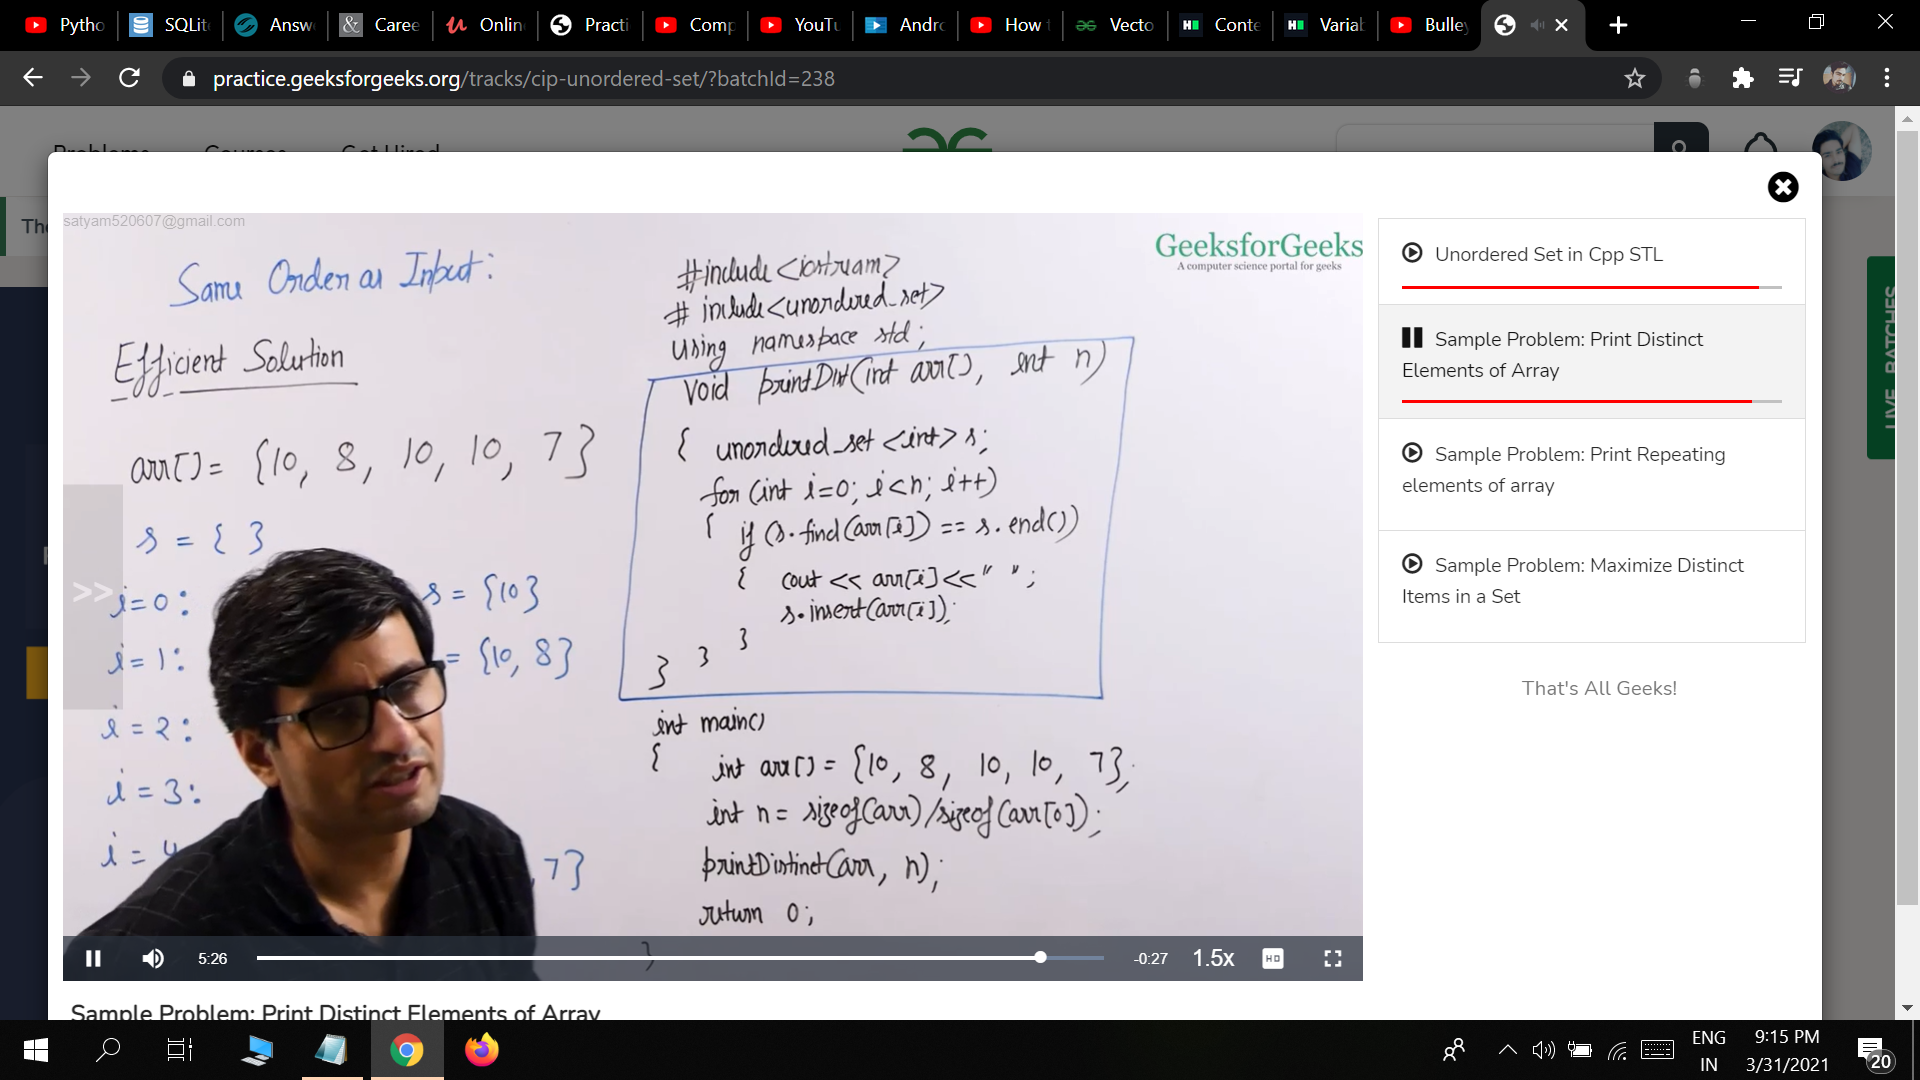 Pytho
SQLit
Answ
Caree
Onlin
Practi
Comp
YouTu
Andro
How t
Vecto
Conte
Variab
Bulley
practice.geeksforgeeks.org/tracks/cip-unordered-set/?batchId=238
Problems Courses Get Hired
The
satyam520607@gmail.com
GeeksforGeeks
A computer science portal for geeks
Same Order as Input:
Efficient Solution
arr[] = {10, 8, 10, 10, 7}
s = { }
i=0: s = {10}
i=1: = {10, 8}
i=2:
i=3:
i=4 , 7}
>>
#include <iostream>
#include<unordered_set>
using namespace std;
void printDist(int arr[], int n)
{ unordered_set <int> s;
for (int i=0; i<n; i++)
{ if (s.find(arr[i]) == s.end())
{ cout << arr[i]<<" ";
s.insert(arr[i]);
}
}
}
int main()
{
int arr[] = {10, 8, 10, 10, 7};
int n = sizeof(arr)/sizeof(arr[0]);
printDistinct(arr, n);
return 0;
}
5:26
-0:27
1.5x
HD
Sample Problem: Print Distinct Elements of Array
Unordered Set in Cpp STL
Sample Problem: Print Distinct
Elements of Array
Sample Problem: Print Repeating
elements of array
Sample Problem: Maximize Distinct
Items in a Set
That's All Geeks!
LIVE BATCHES
ENG
IN
9:15 PM
3/31/2021
20